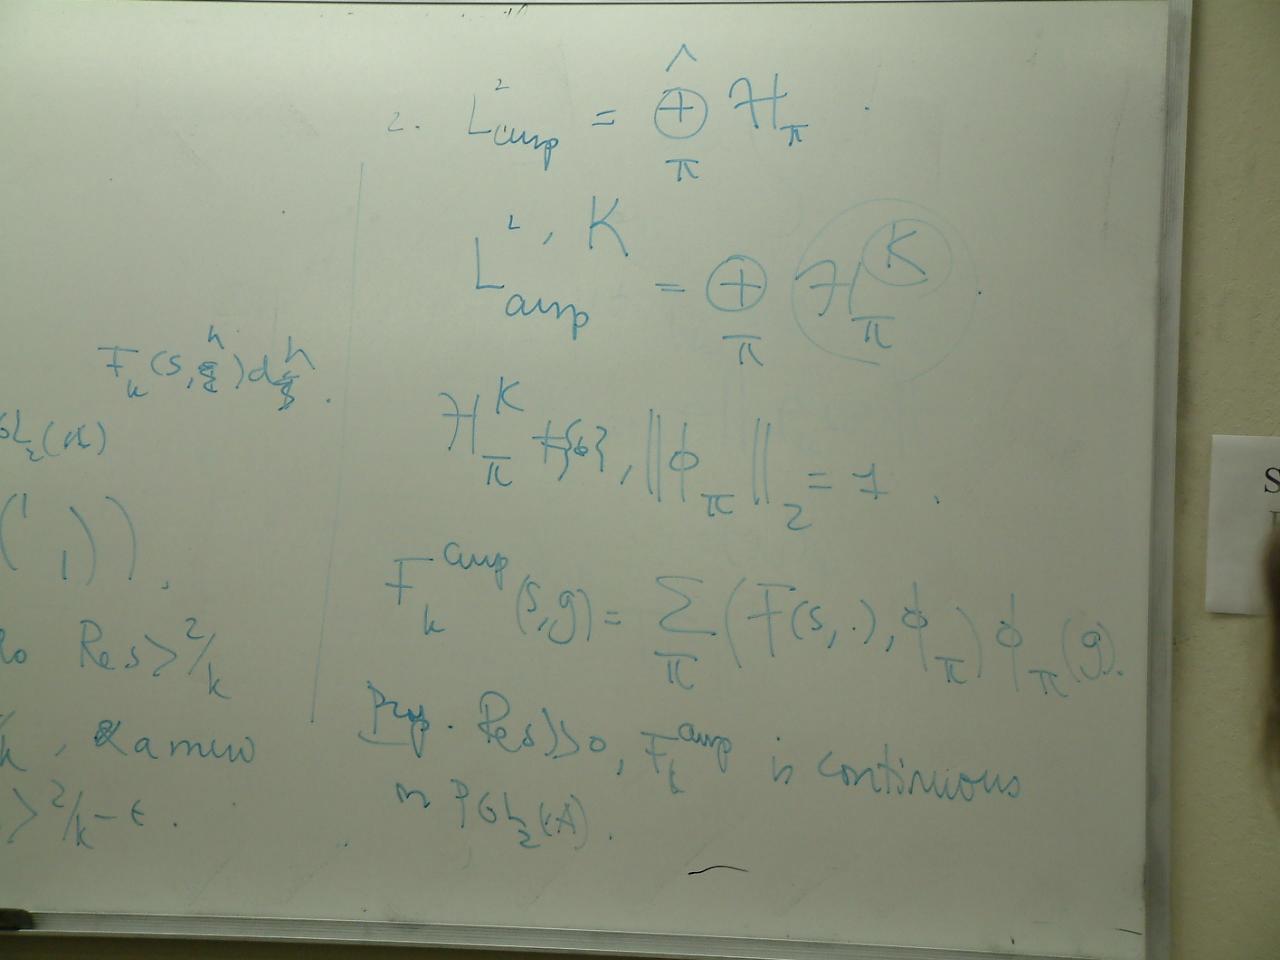 F_k(s, h) dh.
GL_2(A)
( 1 1 ) ) .
Re s > 2/k
k, a mero
> 2/k - ε .
2. L^2_cusp = ⊕̂_π H_π .
L^{2, K}_cusp = ⊕_π H_π^K .
H_π^K ≠ {0}, ||φ_π||_2 = 1 .
F_k^cusp (s, g) = Σ_π (F(s, .), φ_π) φ_π(g).
Prop. Re s >> 0, F_k^cusp is continuous
on PGL_2(A).
S